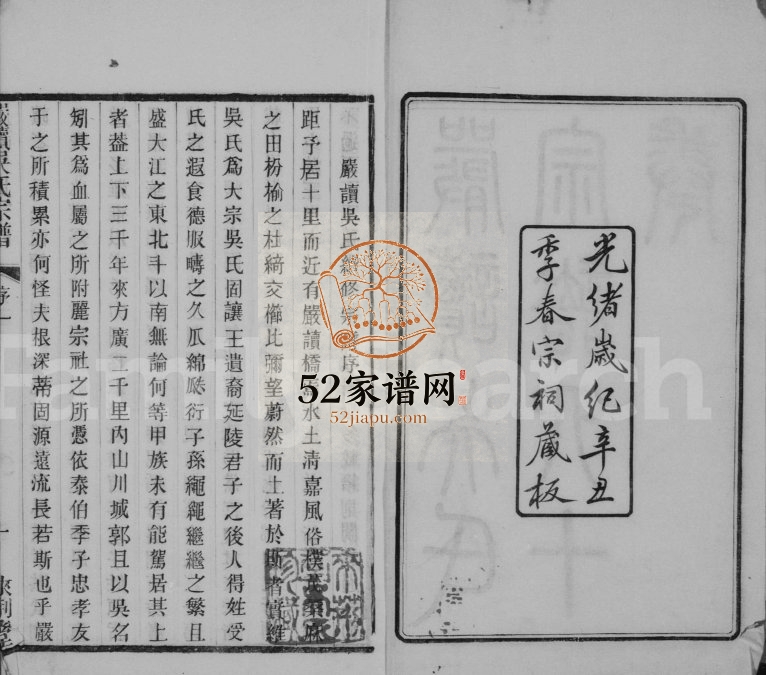 光緒歲纪辛丑
季春宗祠藏板
嚴讀吳氏續修宗譜序
距予居十里而近有嚴讀橋水土清嘉風俗樸茂桑麻
之田枌榆之社綺交櫛比彌望蔚然而土著於斯者實維
吳氏爲大宗吳氏固讓王遺裔延陵君子之後人得姓受
氏之遐食德服疇之久瓜綿瓞衍子孫繩繩繼繼之繁且
盛大江之東北斗以南無論何等甲族未有能駕居其上
者葢上下三千年來方廣二千里內山川城郭且以吳名
矧其爲血屬之所附麗宗社之所憑依泰伯季子忠孝友
于之所積累亦何怪夫根深蒂固源遠流長若斯也乎嚴
嚴讀吳氏宗譜
序一
一
52家谱网
52jiapu.com
FamilySearch